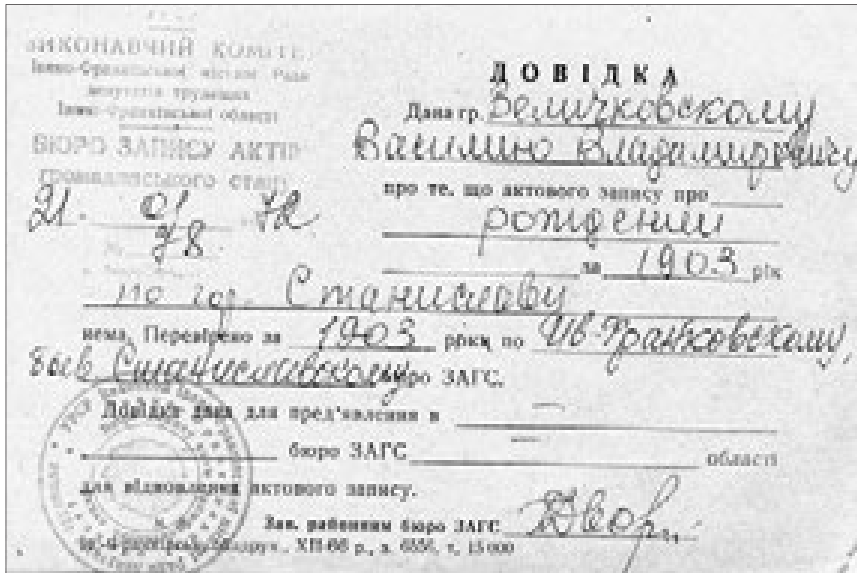 ВИКОНАВЧИЙ КОМІТЕТ
Івано-Франківської міської Ради
депутатів трудящих
Івано-Франківської області
БЮРО ЗАПИСУ АКТІВ
громадянського стану
21. 01 72.
№ 78
ДОВІДКА
Дана гр. Величковскому
Василию Владамировичу
про те, що актового запису про
рождении
за 1903 рік
по гор. Станиславу
нема. Перевірено за 1903 роки по Ив-Франковскому,
бывш. Станиславскому бюро ЗАГС.
Довідка дана для пред'явлення в —
бюро ЗАГС — області
для відновлення актового запису.
Зав. районним бюро ЗАГС
XII-66 р., з. 6556, т. 15000